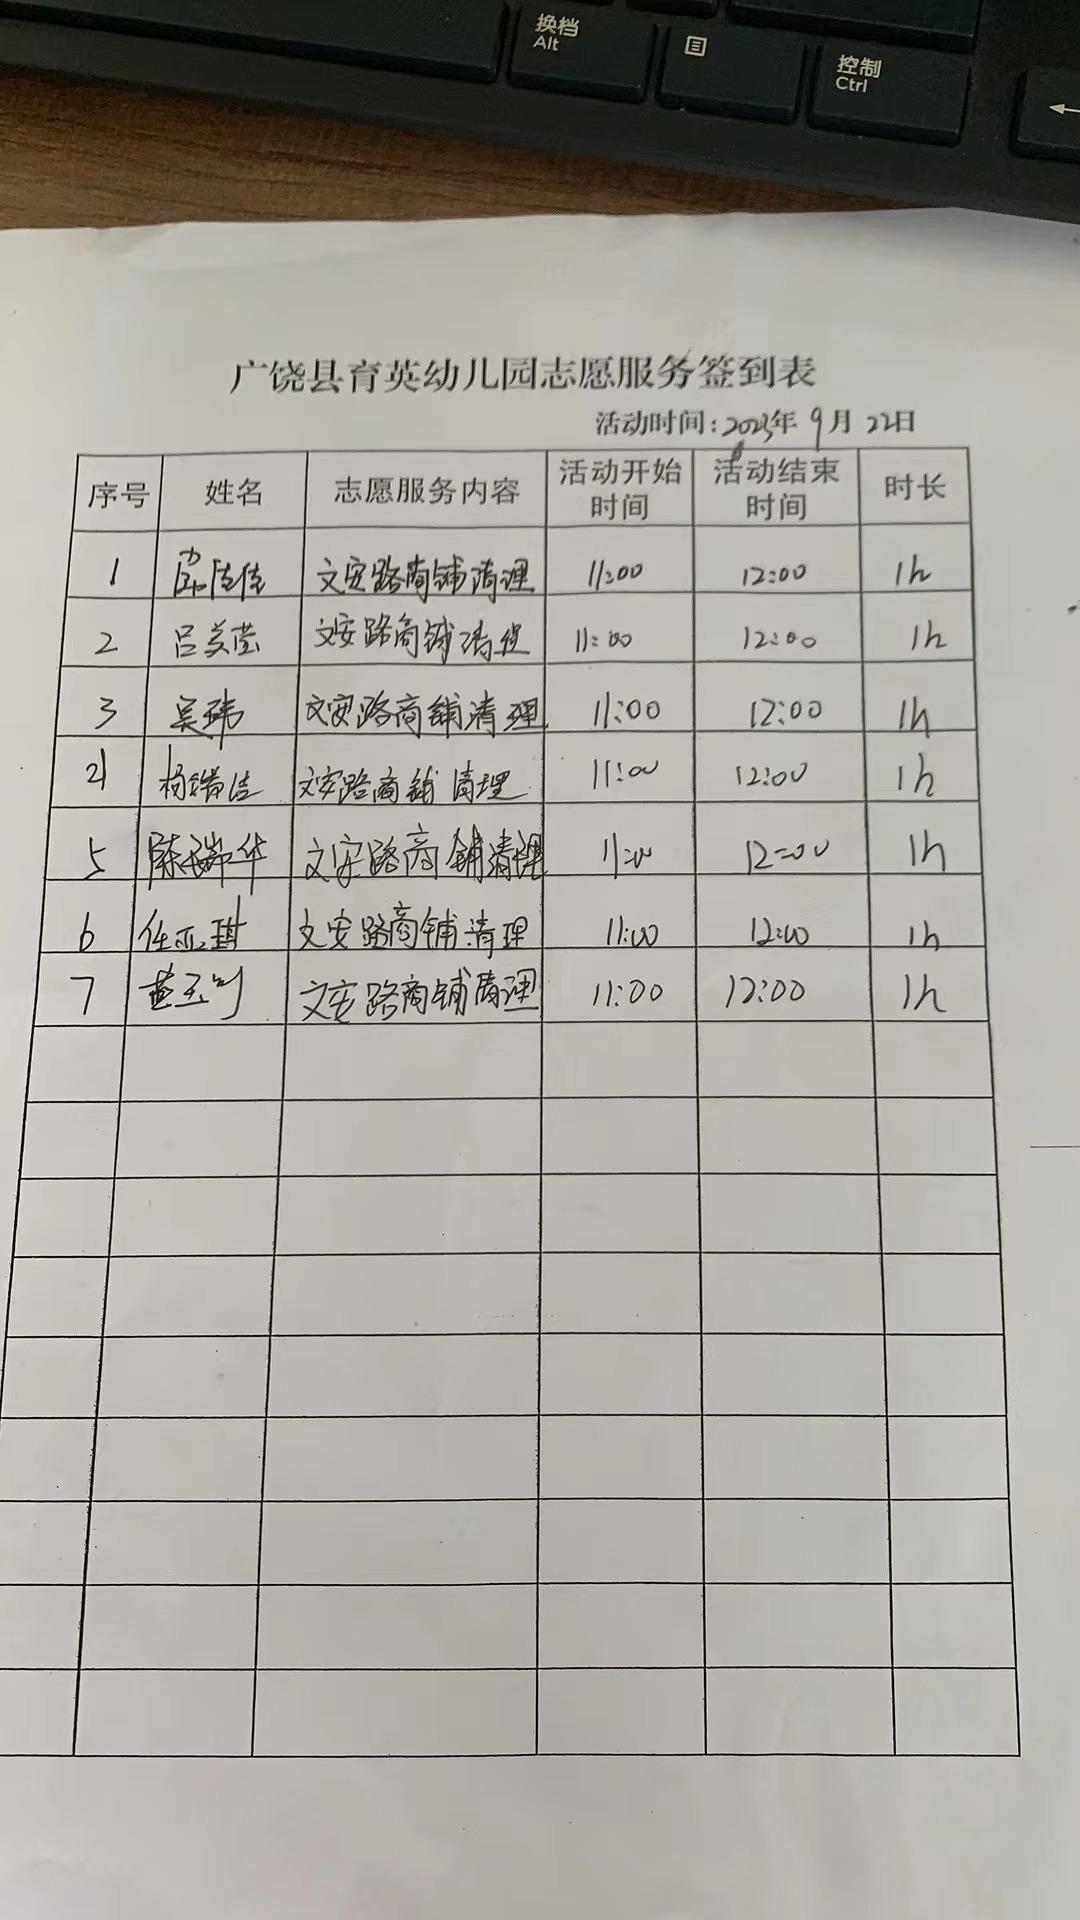 换档
Alt
控制
Ctrl
广饶县育英幼儿园志愿服务签到表
活动时间：2023年 9月 22日
序号 姓名 志愿服务内容 活动开始时间 活动结束时间 时长
1 文安路商铺清理 11:00 12:00 1h
2 吕美莹 文安路商铺清理 11:00 12:00 1h
3 吴玮 文安路商铺清理 11:00 12:00 1h
4 杨 洁 文安路商铺清理 11:00 12:00 1h
5 陈瑞华 文安路商铺清理 11:00 12:00 1h
6 任亚琪 文安路商铺清理 11:00 12:00 1h
7 文安路商铺清理 11:00 12:00 1h